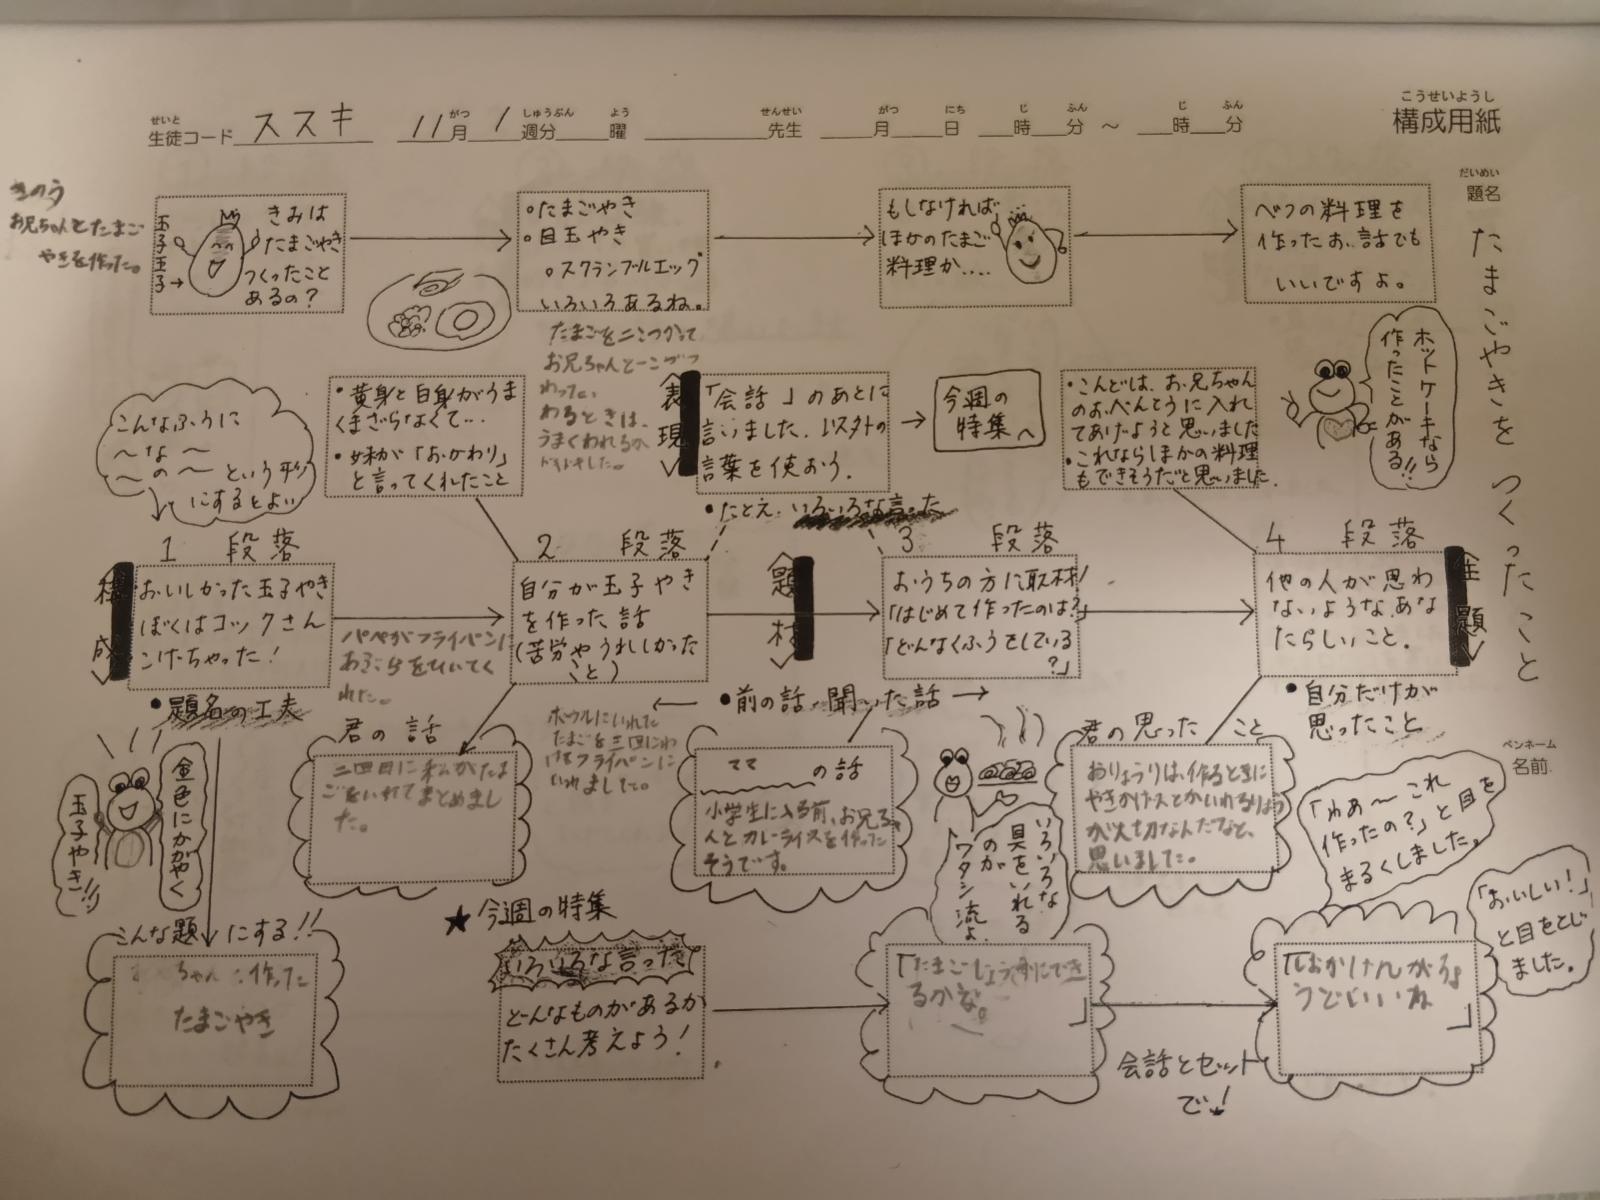 こうせいようし
構成用紙
せいと がつ しゅうぶん よう せんせい がつ にち じ ふん じ ふん
生徒コード ススキ 11月 1週分 曜 先生 月 日 時 分 ～ 時 分
だいめい
題名
たまごやきをつくったこと
きのう
お兄ちゃんとたまご
やきを作った。
玉子王子→
きみは
たまごやき
つくったこと
あるの？
○たまごやき
○目玉やき
○スクランブルエッグ
いろいろあるね。
もしなければ
ほかのたまご
料理か....
べつの料理を
作ったお話でも
いいですよ。
ホットケーキなら
作ったことがある!!
こんなふうに
～な～
～の～という形
にするとよい
・黄身と白身がうま
くまざらなくて…
・妹が「おかわり」
と言ってくれたこと
たまごを二こつかって
お兄ちゃんと一こずつ
わった。
わるときは、
うまくわれるか
表現
「会話」のあとに
言いました。以外の
言葉を使おう。
今週の
特集へ
・こんどは、お兄ちゃん
のおべんとうに入れ
てあげようと思いました
・これならほかの料理
もできそうだと思いました。
・たとえ、いろいろな言った
1 段落
2 段落
3 段落
4 段落
構成
おいしかった玉子やき
ぼくはコックさん
こげちゃった！
自分が玉子やき
を作った話
(苦労やうれしかった
こと)
題材
おうちの方に取材！
「はじめて作ったのは？」
「どんなくふうをしている
？」
他の人が思わ
ないような、あな
たらしいこと。
主題
パパがフライパンに
あぶらをひいてく
れた。
・題名の工夫
・前の話、聞いた話
・自分だけが
思ったこと
ペンネーム
名前
金色にかがやく
玉子やき!!
君の話
三回目に私がたま
ごをいれてまとめまし
た。
ボウルにいれた
たまごを三回にわ
けてフライパンに
いれました。
ママ の話
小学生に入る前、お兄ちゃ
んとカレーライスを作った
そうです。
いろいろな
具をいれる
のが
ワタシ流よ
君の思ったこと
おりょうりは、作るときに
が大切なんだなと、
思いました。
「わあ～これ
作ったの？」と目を
まるくしました。
「おいしい！」
と目をとじ
ました。
こんな題にする!!
ちゃんと作った
たまごやき
★今週の特集
いろいろな言った
どんなものがあるか
たくさん考えよう！
「たまごじょう好にでき
るかな。
」
会話とセット
で！
」